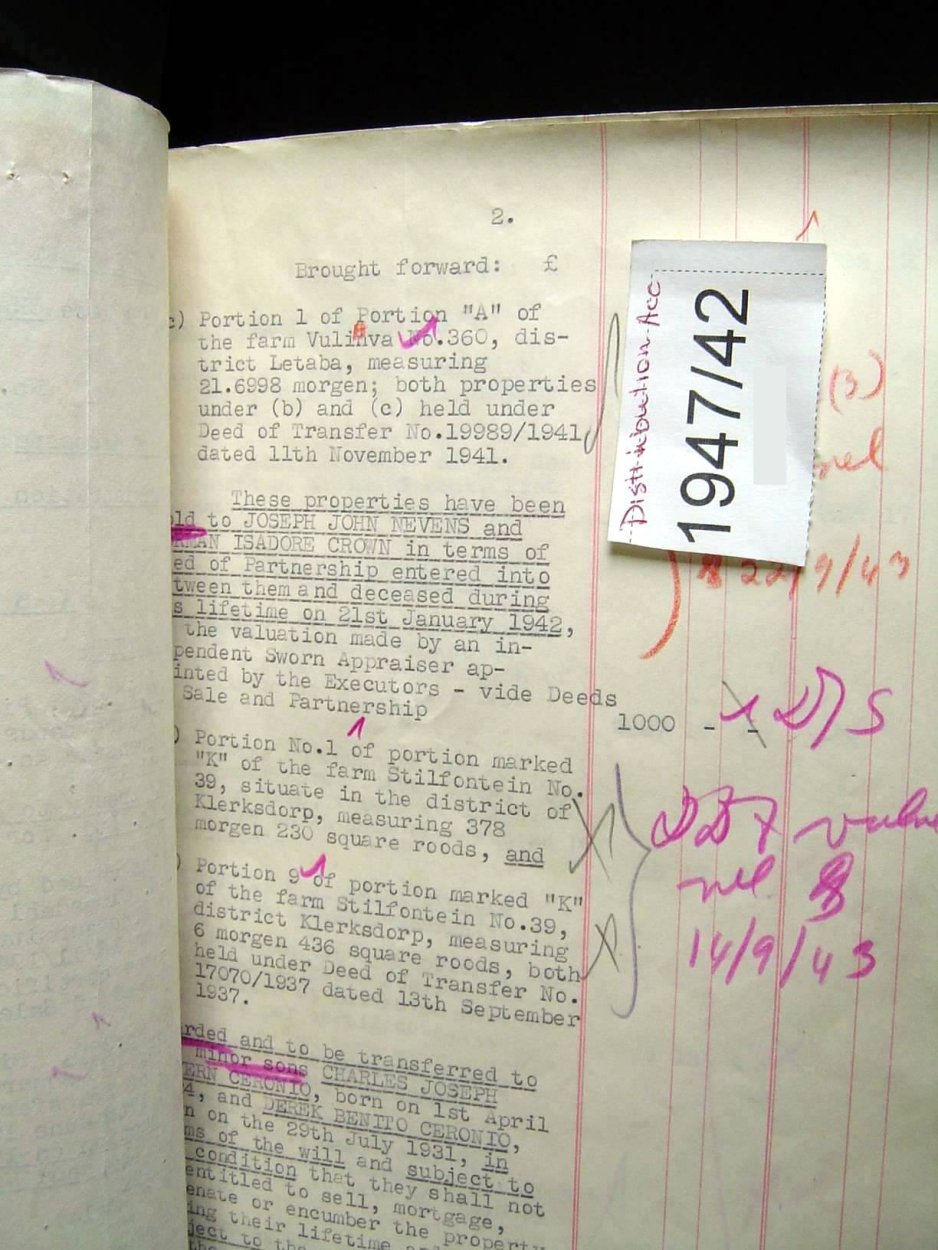 2.
Brought forward: £
c) Portion 1 of Portion "A" of
the farm Vulinva No.360, dis-
trict Letaba, measuring
21.6998 morgen; both properties
under (b) and (c) held under
Deed of Transfer No.19989/1941
dated 11th November 1941.
These properties have been
ld to JOSEPH JOHN NEVENS and
RMAN ISADORE CROWN in terms of
ed of Partnership entered into
tween them and deceased during
s lifetime on 21st January 1942,
the valuation made by an in-
pendent Sworn Appraiser ap-
inted by the Executors - vide Deeds
Sale and Partnership
1000 - -
) Portion No.1 of portion marked
"K" of the farm Stilfontein No.
39, situate in the district of
Klerksdorp, measuring 378
morgen 230 square roods, and
) Portion 9 of portion marked "K"
of the farm Stilfontein No.39,
district Klerksdorp, measuring
6 morgen 436 square roods, both
held under Deed of Transfer No.
17070/1937 dated 13th September
1937.
rded and to be transferred to
minor sons CHARLES JOSEPH
ERN CERONIO, born on 1st April
4, and DEREK BENITO CERONIO,
n on the 29th July 1931, in
ms of the will and subject to
condition that they shall not
entitled to sell, mortgage,
enate or encumber the property
ing their lifetime
ject to the
Distribution Acc
1947/42
(3)
22/9/43
D/S
14/9/43